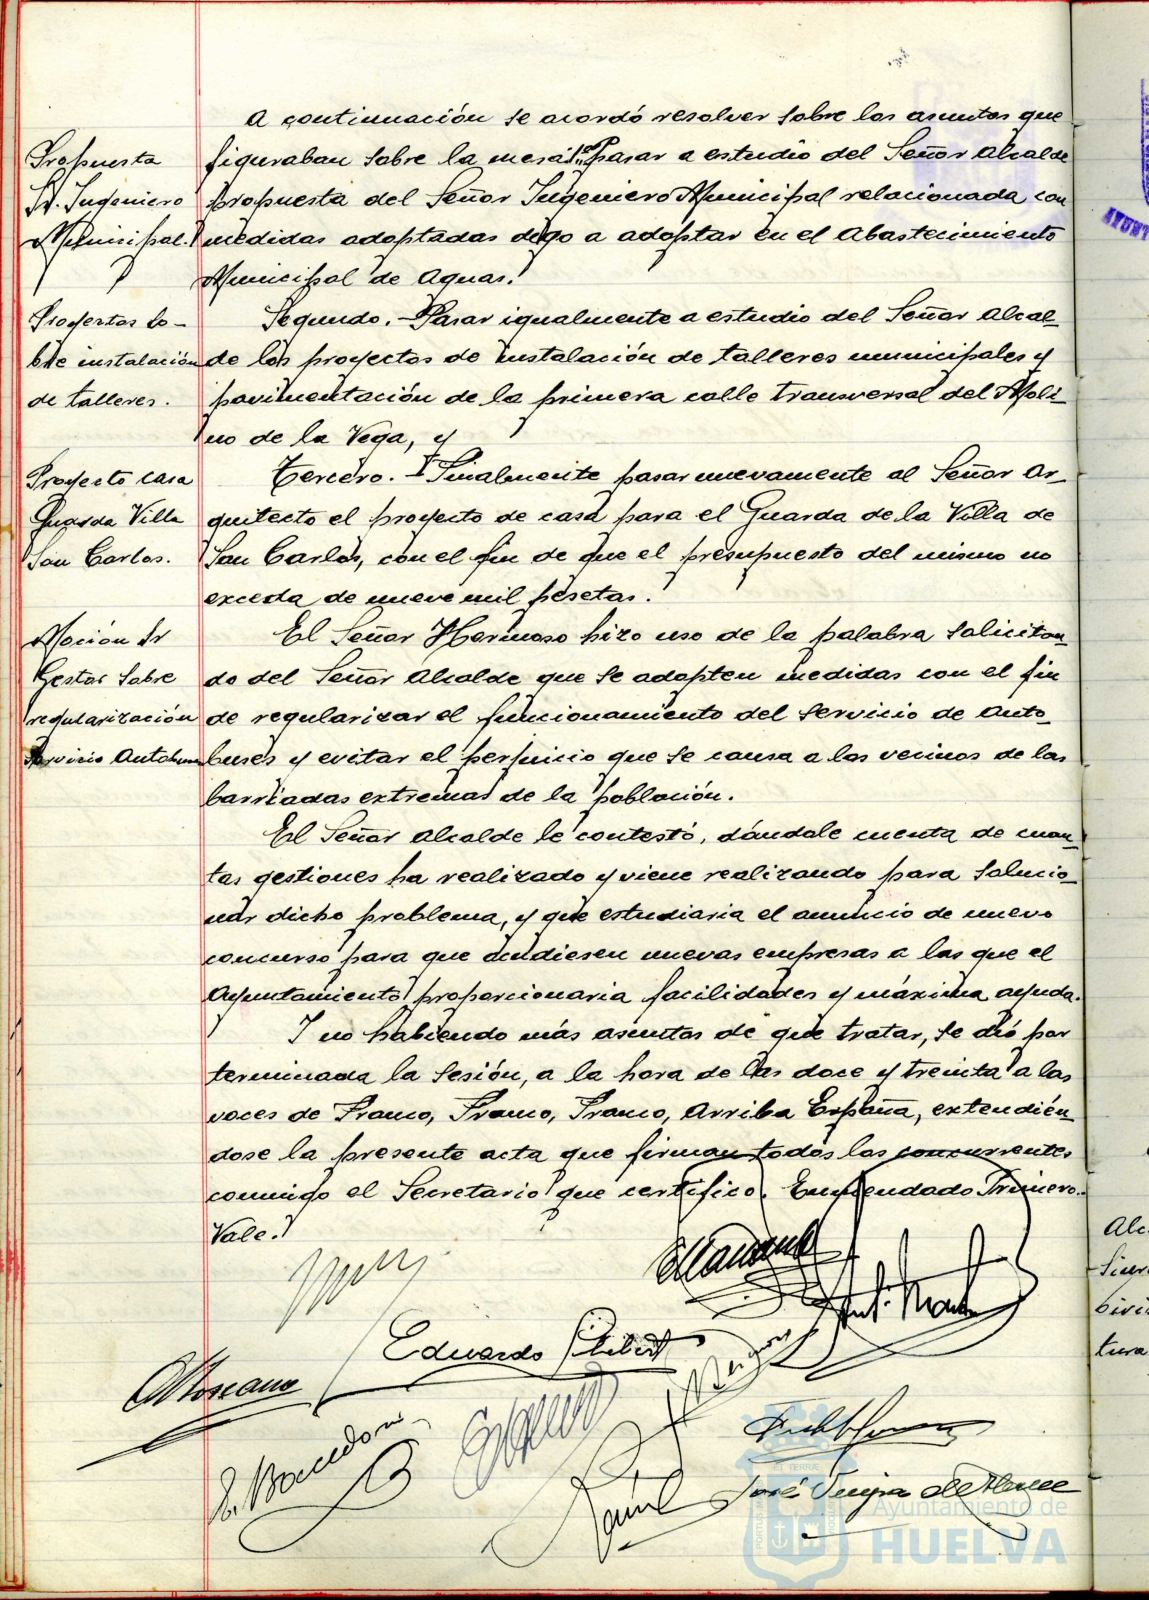 A continuación se acordó resolver sobre los asuntos que
Propuesta
Sr. Ingeniero
Municipal.
figuraban sobre la mesa: 1º Pasar a estudio del Señor Alcalde
propuesta del Señor Ingeniero Municipal relacionada con
medidas adoptadas digo a adoptar en el Abastecimiento
Municipal de Aguas.
Proyectos so-
bre instalación
de talleres.
Segundo.- Pasar igualmente a estudio del Señor Alcal-
de los proyectos de instalación de talleres municipales y
pavimentación de la primera calle transversal del Moli-
no de la Vega, y
Proyecto casa
Guarda Villa
San Carlos.
Tercero.- Finalmente pasar nuevamente al Señor Ar-
quitecto el proyecto de casa para el Guarda de la Villa de
San Carlos, con el fin de que el presupuesto del mismo no
exceda de nueve mil pesetas.
Moción Sr
Gestor sobre
regularización
Servicio Autobuses
El Señor Hermoso hizo uso de la palabra solicitan-
do del Señor Alcalde que se adopten medidas con el fin
de regularizar el funcionamiento del servicio de Auto-
buses y evitar el perjuicio que se causa a los vecinos de las
barriadas extremas de la población.
El Señor Alcalde le contestó, dándole cuenta de cuan-
tas gestiones ha realizado y viene realizando para solucio-
nar dicho problema, y que estudiaria el anuncio de nuevo
concurso para que acudiesen nuevas empresas a las que el
Ayuntamiento proporcionaria facilidades y máxima ayuda.
Y no habiendo más asuntos de que tratar, se dió por
terminada la sesión, a la hora de las doce y treinta a las
voces de Franco, Franco, Franco, Arriba España, extendién-
dose la presente acta que firman todos los concurrentes
conmigo el Secretario que certifico. Enmendado Primero.-
Vale.
Eduardo
José
Alc
tura
Ayuntamiento de
HUELVA